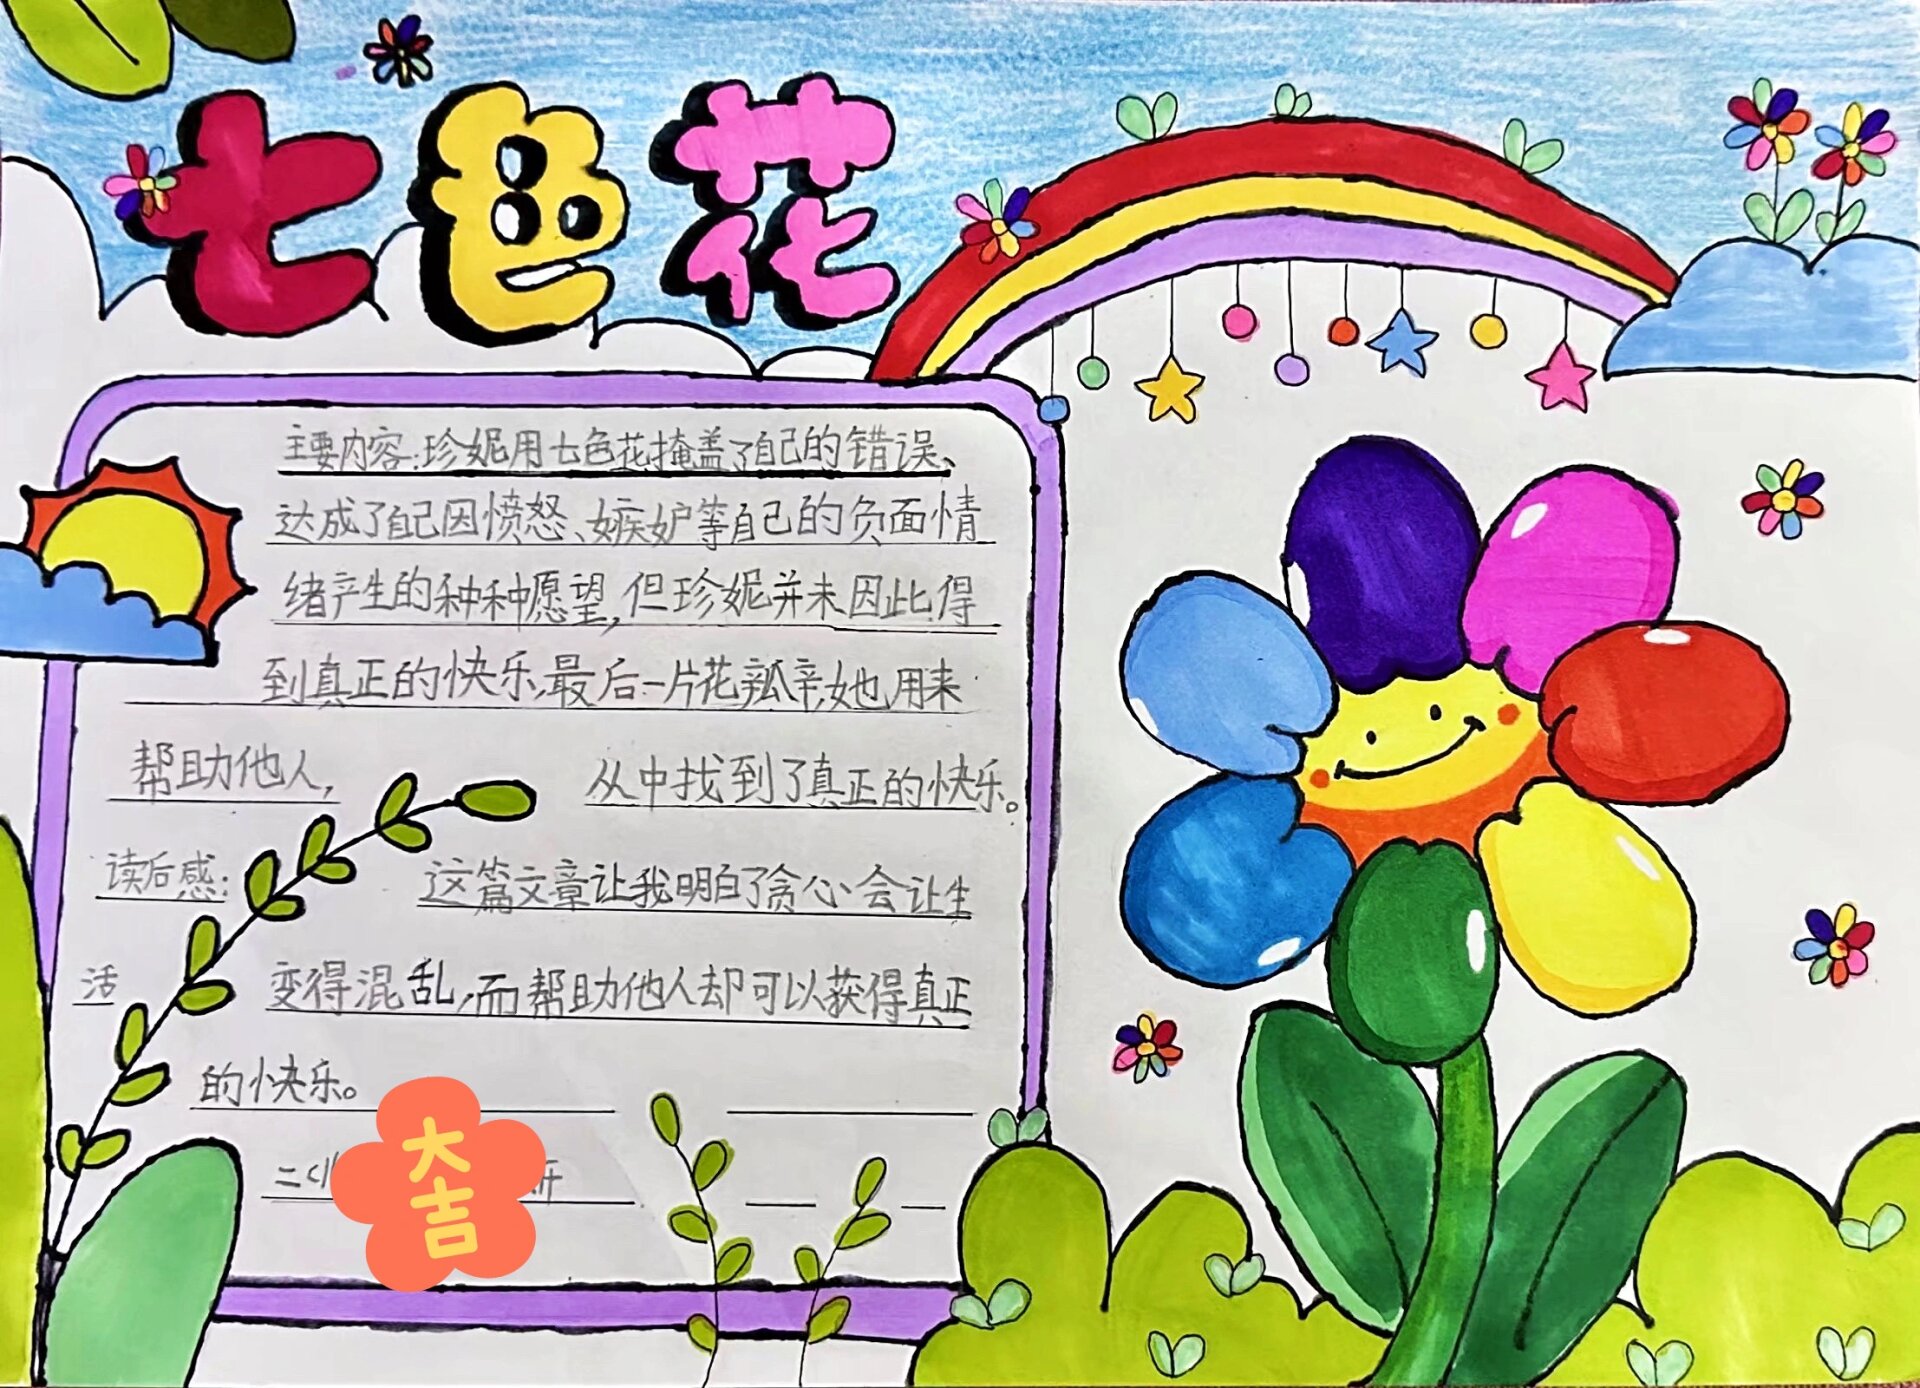 七色花
主要内容:珍妮用七色花掩盖了自己的错误、
达成了自己因愤怒、嫉妒等自己的负面情
绪产生的种种愿望,但珍妮并未因此得
到真正的快乐,最后一片花瓣,她用来
帮助他人, 从中找到了真正的快乐。
读后感: 这篇文章让我明白了贪心会让生
活 变得混乱,而帮助他人却可以获得真正
的快乐。
二
大吉